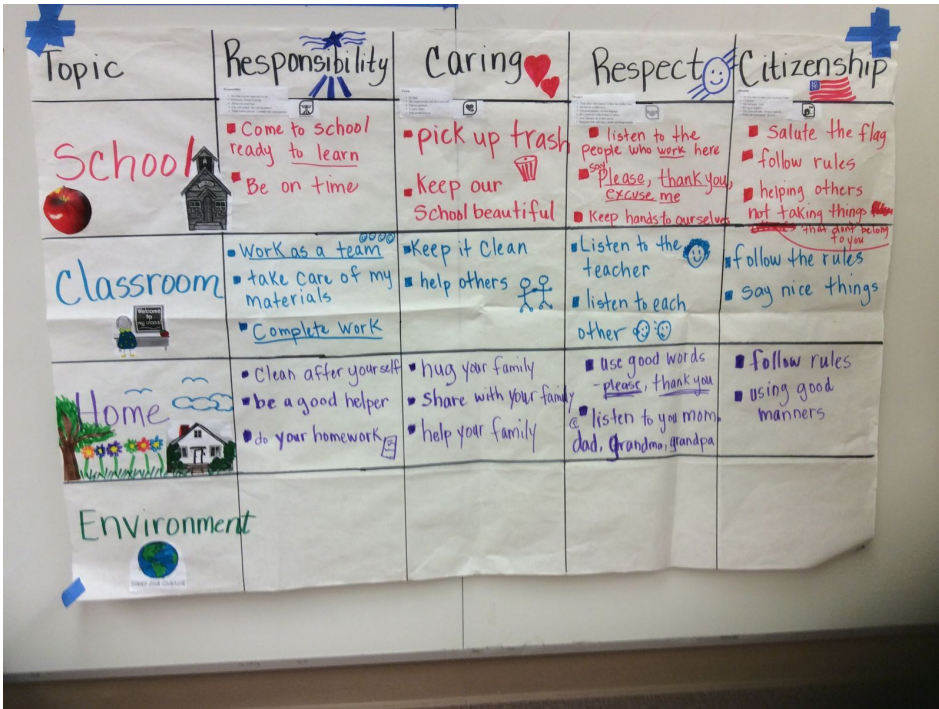 Topic
Responsibility
Caring
Respect
Citizenship
School
Come to school
ready to learn
Be on time
pick up trash
Keep our
School beautiful
listen to the
people who work here
say
Please, thank you,
excuse me
Keep hands to ourselves
Salute the flag
follow rules
helping others
not taking things
that don't belong
to you
Classroom
Welcome
to
my class
Work as a team
take care of my
materials
Complete work
Keep it clean
help others
Listen to the
teacher
listen to each
other
follow the rules
say nice things
Home
Clean after yourself
be a good helper
do your homework
hug your family
Share with your family
help your family
use good words
- please, thank you
listen to you mom,
dad, grandma, grandpa
follow rules
using good
manners
Environment